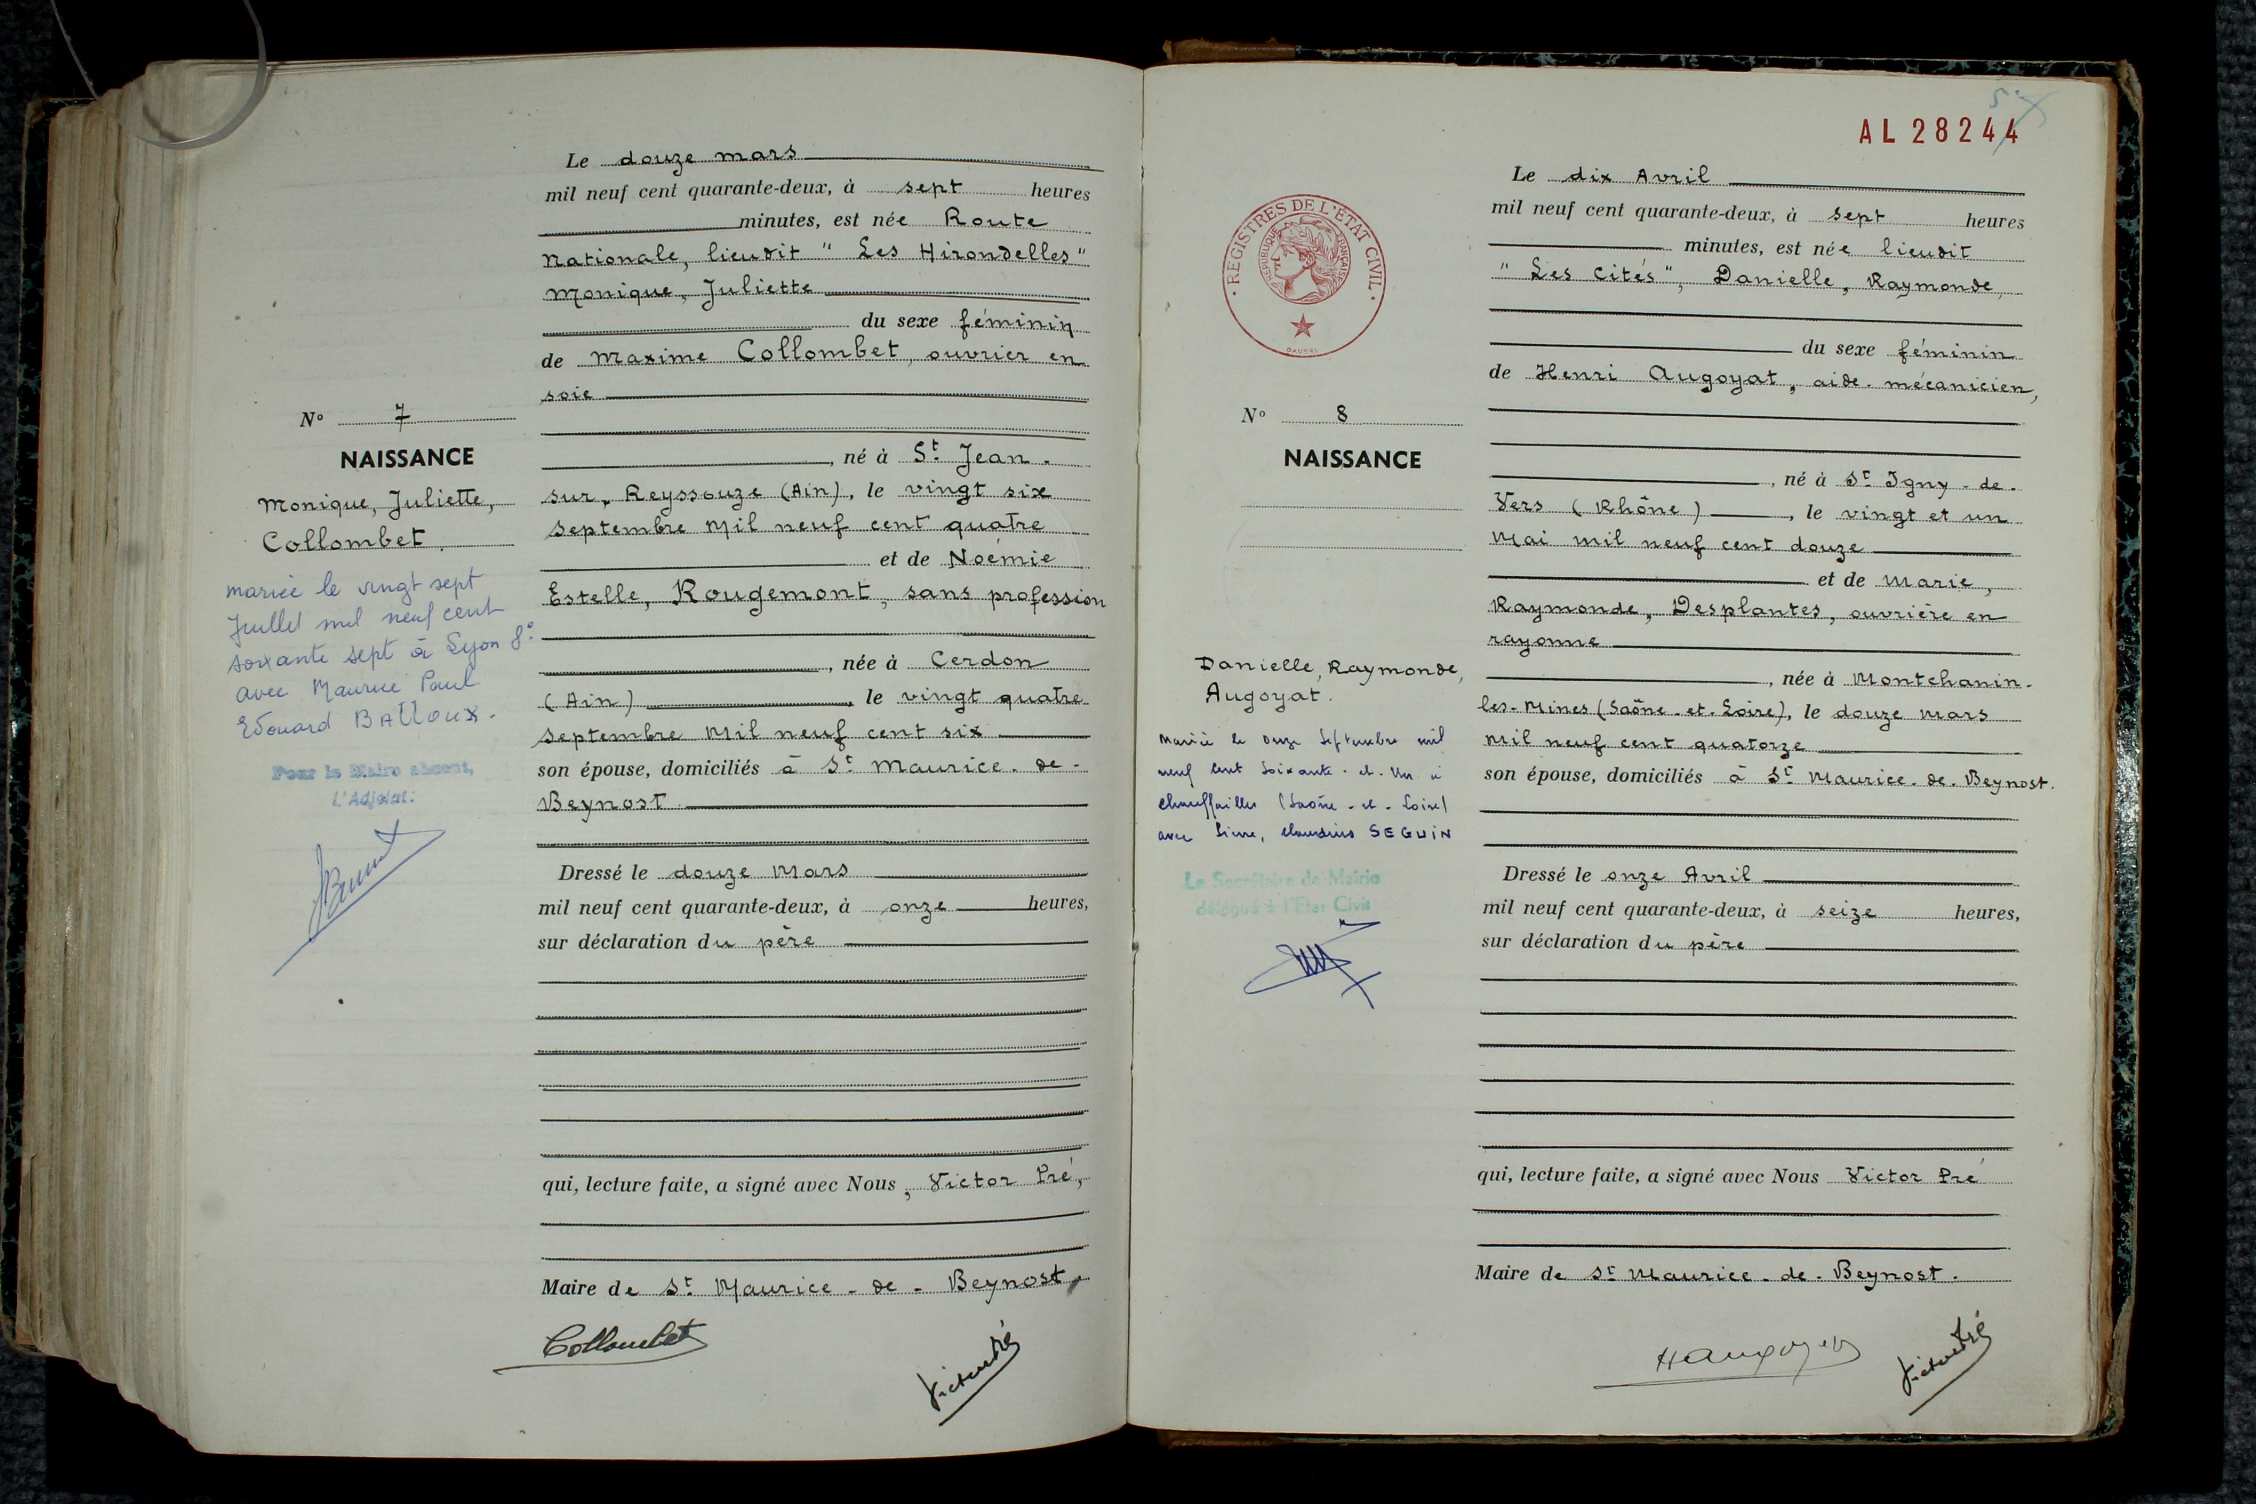 Le douze mars
mil neuf cent quarante-deux, à sept heures
minutes, est née Route
Nationale, lieudit " Les Hirondelles "
Monique, Juliette
du sexe féminin
de Maxime Collombet, ouvrier en
soie
N° 7
NAISSANCE
Monique, Juliette,
Collombet.
mariée le vingt sept
Juillet mil neuf cent
soixante sept à Lyon 8e
avec Maurice Paul
Edouard BALLOUX.
Pour le Maire absent,
L'Adjoint:
, né à St Jean-
sur-Reyssouze (Ain), le vingt six
septembre mil neuf cent quatre
et de Noémie
Estelle, Rougemont, sans profession
, née à Cerdon
(Ain), le vingt quatre
septembre mil neuf cent six
son épouse, domiciliés à St Maurice-de-
Beynost
Dressé le douze Mars
mil neuf cent quarante-deux, à onze heures,
sur déclaration du père
qui, lecture faite, a signé avec Nous, Victor Pré,
Maire de St Maurice-de-Beynost,
Collombet
Victor Pré
AL 28244
REGISTRES DE L'ÉTAT CIVIL
RÉPUBLIQUE FRANÇAISE
Le dix Avril
mil neuf cent quarante-deux, à sept heures
minutes, est née lieudit
" Les Cités", Danielle, Raymonde,
du sexe féminin
de Henri Augoyat, aide-mécanicien,
N° 8
NAISSANCE
Danielle, Raymonde,
Augoyat.
Mariée le onze Septembre mil
neuf cent soixante-et-un à
Chauffailles (Saône-et-Loire)
avec Pierre, Claudius SEGUIN
Le Secrétaire de Mairie
délégué à l'Etat Civil
, né à St Igny-de-
Vers (Rhône), le vingt et un
Mai mil neuf cent douze
et de Marie,
Raymonde, Desplantes, ouvrière en
rayonne
, née à Montchanin-
les-Mines (Saône-et-Loire), le douze mars
mil neuf cent quatorze
son épouse, domiciliés à St Maurice-de-Beynost.
Dressé le onze Avril
mil neuf cent quarante-deux, à seize heures,
sur déclaration du père
qui, lecture faite, a signé avec Nous Victor Pré
Maire de St Maurice-de-Beynost.
H Augoyat
Victor Pré